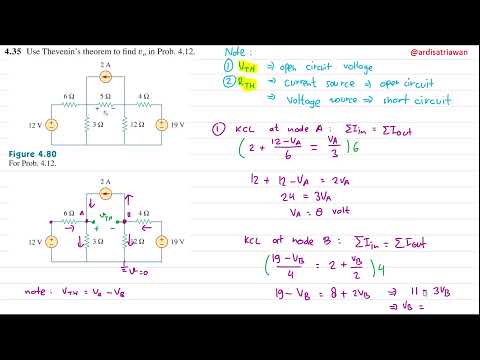 4.35 Use Thevenin's theorem to find vo in Prob. 4.12.
2 A
6 Ω
5 Ω
4 Ω
+ vo −
12 V
3 Ω
12 Ω
19 V
Figure 4.80
For Prob. 4.12.
2 A
6 Ω
A
+ VTH −
B
4 Ω
12 V
3 Ω
2 Ω
19 V
V=0
note : VTH = VA − VB
Note :
@ardisatriawan
① VTH ⇒ open circuit voltage
② RTH ⇒ current source ⇒ open circuit
⇒ voltage source ⇒ short circuit
① KCL at node A : ΣIin = ΣIout
( 2 + (12 − VA)/6 = VA/3 ) 6
12 + 12 − VA = 2VA
24 = 3VA
VA = 8 volt
KCL at node B : ΣIin = ΣIout
( (19 − VB)/4 = 2 + VB/2 ) 4
19 − VB = 8 + 2VB ⇒ 11 = 3VB
⇒ VB =